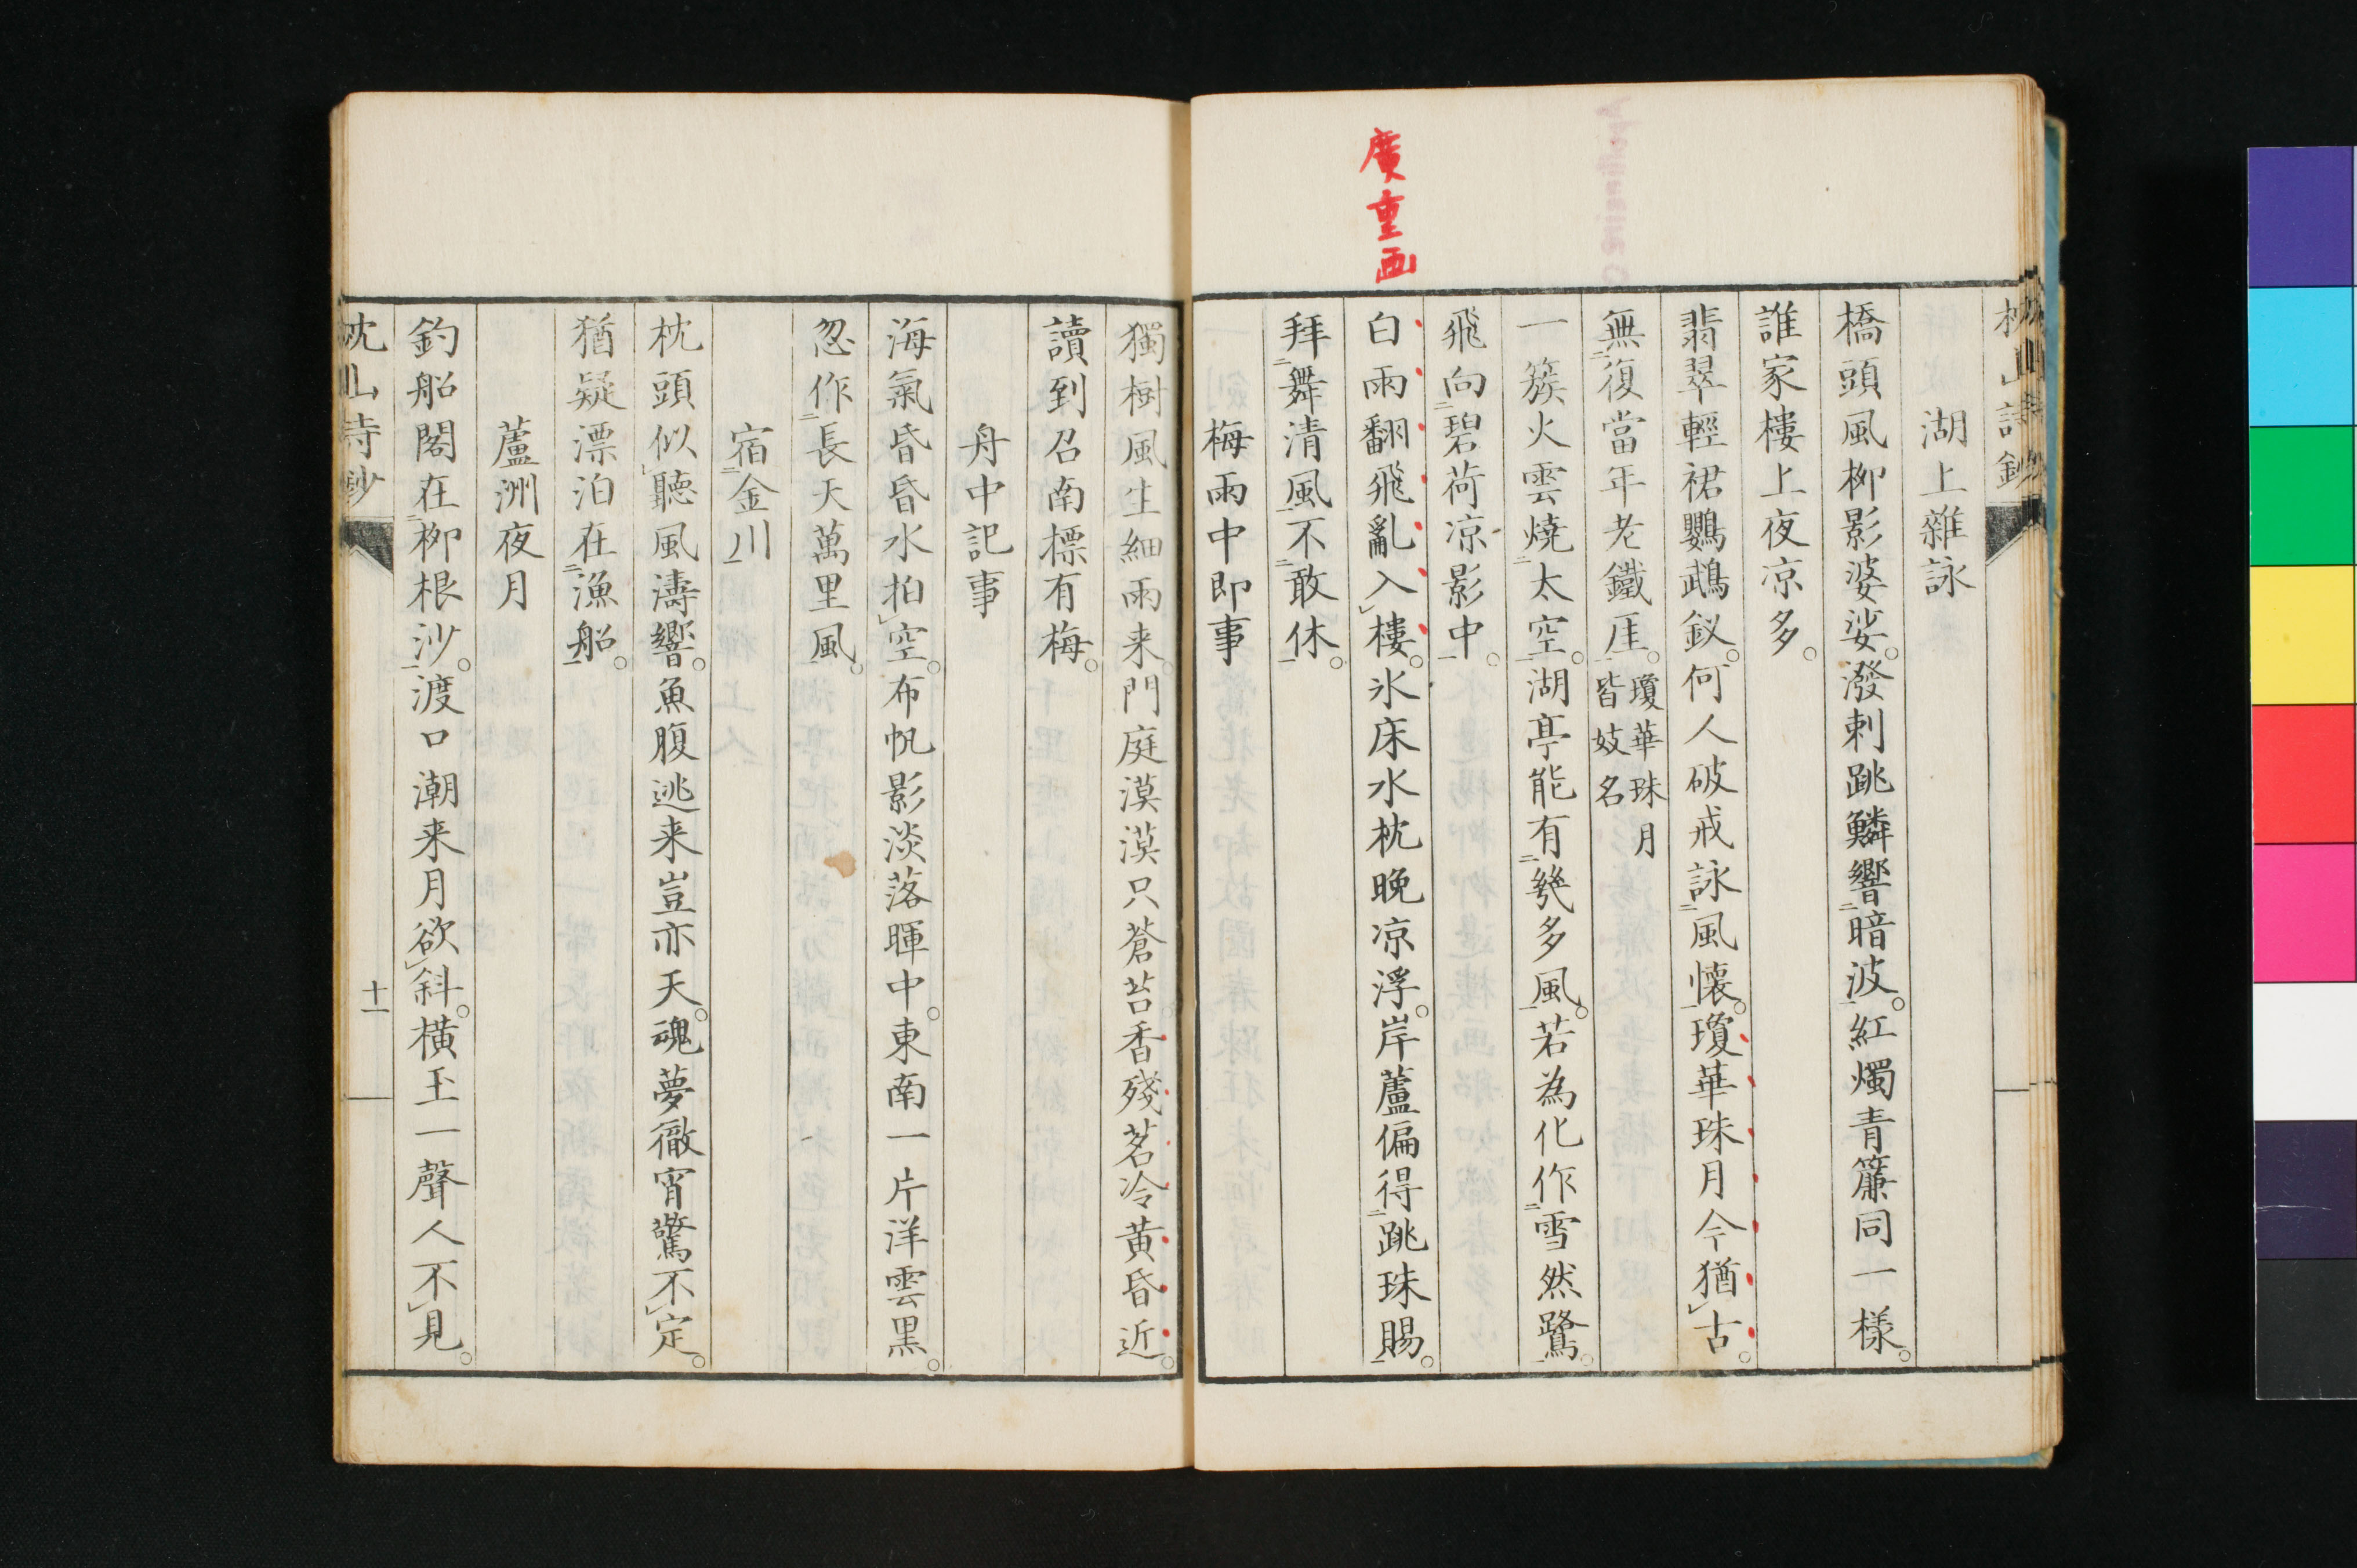 廣重画
枕山詩鈔
湖上雜詠
橋頭風柳影婆娑。潑剌跳鱗響二暗波一。紅燭青簾同一樣。
誰家樓上夜凉多。
翡翠輕裙鸚鵡釵。何人破戒詠二風懷一。瓊華珠月今猶レ古。
無二復當年老鐵厓一。瓊華珠月
皆妓名
一簇火雲燒二太空一。湖亭能有二幾多風一。若為化作二雪然鷺一。
飛向二碧荷凉影中一。
白雨翻飛亂入レ樓。氷床水枕晚凉浮。岸蘆偏得二跳珠賜一。
拜二舞清風一不二敢休一。
梅雨中即事
獨樹風生細雨来。門庭漠漠只蒼苔。香殘茗冷黄昏近。
讀到召南標有梅。
舟中記事
海氣昏昏水拍レ空。布帆影淡落暉中。東南一片洋雲黒。
忽作二長天萬里風一。
宿二金川一
枕頭似レ聽風濤響。魚腹逃来豈亦天。魂夢徹宵驚不レ定。
猶疑漂泊在二漁船一。
蘆洲夜月
釣船閣在二柳根沙一。渡口潮来月欲レ斜。横玉一聲人不レ見。
枕山詩鈔
十一